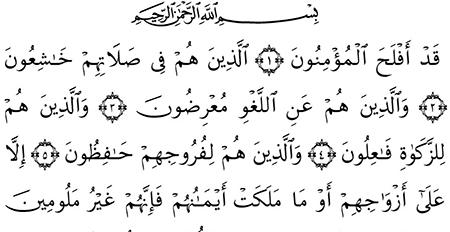 بِسْمِ اللَّهِ الرَّحْمَٰنِ الرَّحِيمِ
قَدْ أَفْلَحَ الْمُؤْمِنُونَ ﴿١﴾ الَّذِينَ هُمْ فِي صَلَاتِهِمْ خَٰشِعُونَ
﴿٢﴾ وَالَّذِينَ هُمْ عَنِ اللَّغْوِ مُعْرِضُونَ ﴿٣﴾ وَالَّذِينَ هُمْ
لِلزَّكَوٰةِ فَٰعِلُونَ ﴿٤﴾ وَالَّذِينَ هُمْ لِفُرُوجِهِمْ حَٰفِظُونَ ﴿٥﴾ إِلَّا
عَلَىٰ أَزْوَٰجِهِمْ أَوْ مَا مَلَكَتْ أَيْمَٰنُهُمْ فَإِنَّهُمْ غَيْرُ مَلُومِينَ